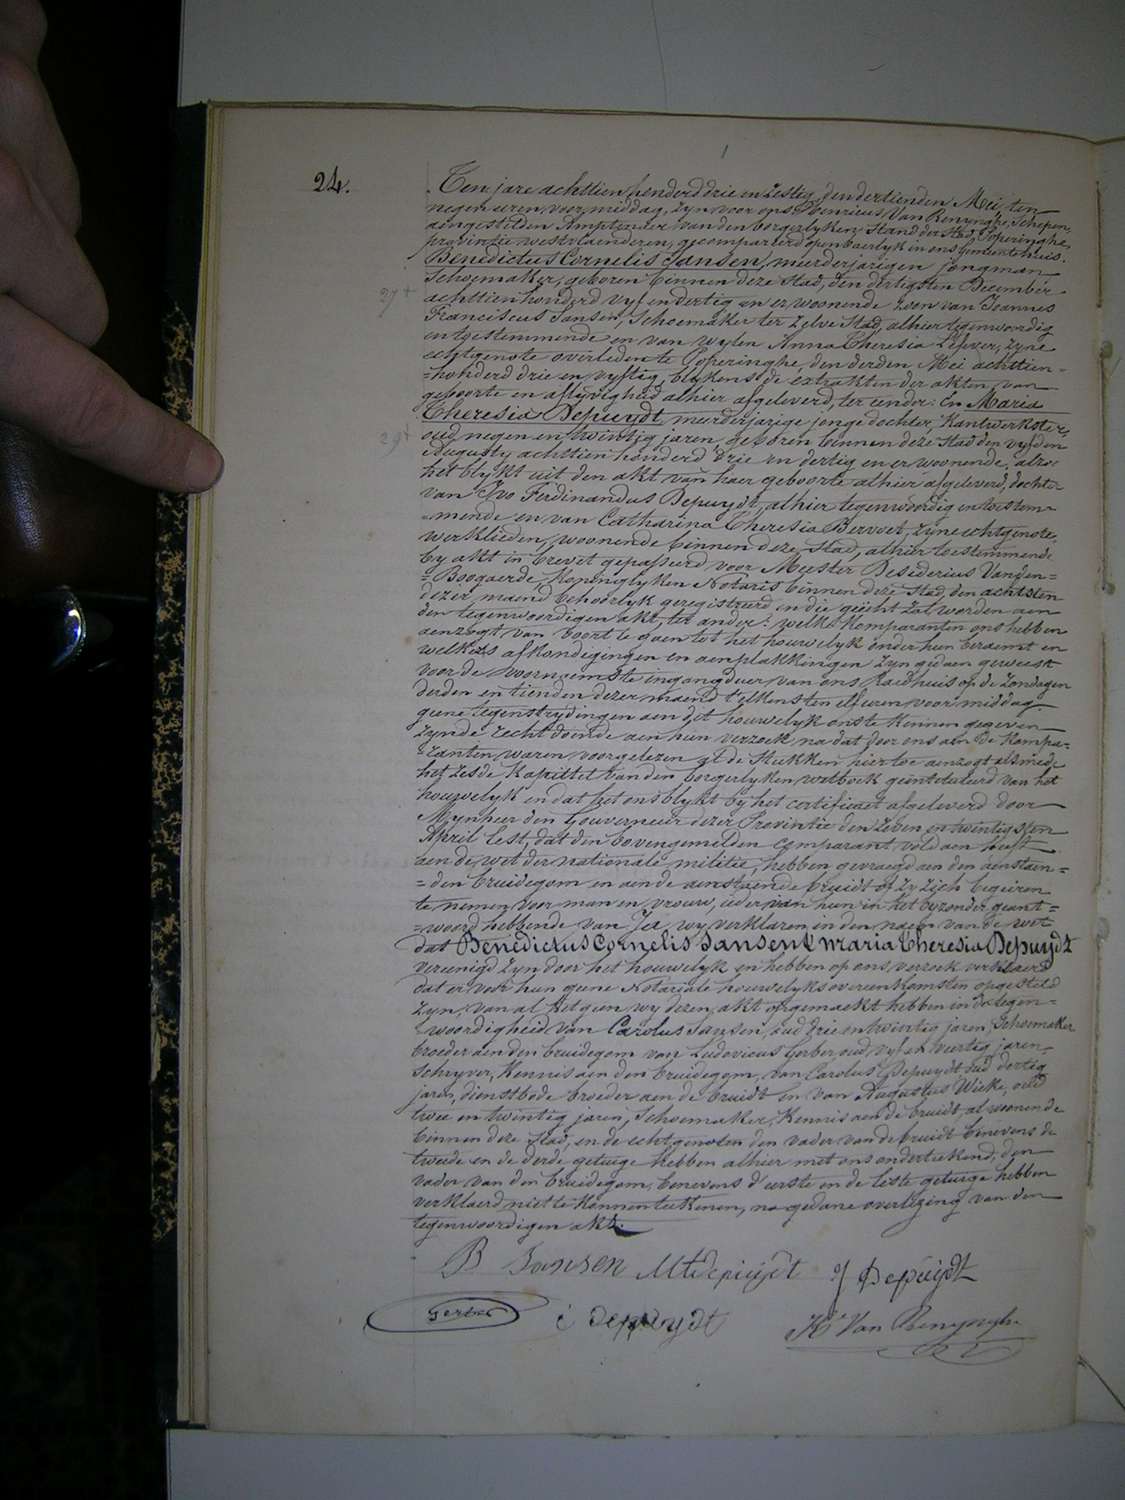 24.
Ten jare achttien honderd drie en zestig, den dertienden Mei, ten
negen uren voormiddag, zyn voor ons Henricus Van Renynghe, Schepen,
aengestelden Amptenaer van den borgerlyken Stand der stad Poperinghe,
provintie westvlaenderen, gecompareerd openbaerlyk in ons Gemeentehuis.
Benedictus Cornelis Jansen, meerderjarigen jongman
Schoemaker, geboren binnen deze Stad, den dertigsten December
27 +
achttien honderd vyf en dertig en er woonende zoon van Joannes
Franciscus Jansen, Schoemaker ter zelve Stad, alhier tegenwoordig
en toestemmende en van wylen Anna Theresia Lefever, zyne
echtgenote overleden te Poperinghe, den derden Mei achttien=
=honderd drie en vyftig, blykens de extrakten der akten van
geboorte en aflyvigheid alhier afgeleverd, ter eender: En Maria
Theresia Depuydt, meerderjarige jonge dochter, Kantwerkster,
29 +
oud negen en twintig jaren, geboren binnen deze Stad den vyfden
Augusty achttien honderd drie en dertig en er woonende, alzo
het blykt uit den akt van haer geboorte alhier afgeleverd, dochter
van Ivo Ferdinandus Depuydt, alhier tegenwoordig en toestem=
=mende en van Catharina Theresia Bervoet, zyne echtgenote,
werklieden, woonende binnen deze Stad, alhier toestemmende
by akt in brevet gepasseerd voor Meester Desiderius Vanden=
=Boogaerde, Koninglyken Notaris binnen deze Stad, den achtsten
dezer maend behoorlyk geregistreerd en die gehecht zal worden aen
den tegenwoordigen akt, ter ander: welke komparanten ons hebben
aenzogt van voort te gaen tot het houwelyk onder hun beraemt en
welkers afkondigingen en aenplakkingen zyn gedaen geweest
voor de voornaemste ingangdeur van ons Raedhuis op de zondagen
derden en tienden dezer maend t'elkens ten elf uren voormiddag
geene tegenstrydingen aen dit houwelyk ons te kennen gegeven
zynde recht doende aen hun verzoek, na dat door ons aen de kompa=
=ranten waren voorgelezen al de stukken hier toe aenzogt als mede
het zesde kapittel van den borgerlyken wetboek geintituleerd van het
houwelyk en dat het ons blykt by het certificaet afgeleverd door
Mynheer den Gouverneur dezer Provintie den zeven en twintigsten
April lest, dat den bovengemelden comparant voldaen heeft
aen de wet der nationale militie, hebben gevraegd aen den aenstaen=
=den bruidegom en aen de aenstaende bruidt of zy zich begeiren
te nemen voor man en vrouw, ieder van hun in het byzonder geant=
=woord hebbende van Ja, wy verklaren in den naem van de wet
dat Benedictus Cornelis Jansen & Maria Theresia Depuydt
vereenigd zyn door het houwelyk en hebben op ons verzoek verklaerd
dat er voor hun geene Notariale houwelyksovereenkomsten opgesteld
zyn, van al het geen wy dezen akt opgemaekt hebben in de tegen=
woordigheid van Carolus Jansen, oud drie en twintig jaren, Schoemaker
broeder aen den bruidegom van Ludovicus Gerber, oud vyf en veertig jaren,
Schryver, Kennis aen den bruidegom, van Carolus Depuydt oud dertig
jaren, dienstbode broeder aen de bruidt en van Augustus Wieke, oud
twee en twintig jaren, Schoemaker, Kennis aen de bruidt, al woonende
binnen deze Stad, en de echtgenoten den vader van de bruidt benevens de
tweede en de derde getuige hebben alhier met ons onderteekend, den
vader van den bruidegom, benevens d'eerste en de leste getuige hebben
verklaerd niet te konnen teekenen, na gedane overlezing van den
tegenwoordigen akt.
B Jansen MtDepuydt y Depuydt
Gerber c Depuydt Hri Van Renynghe